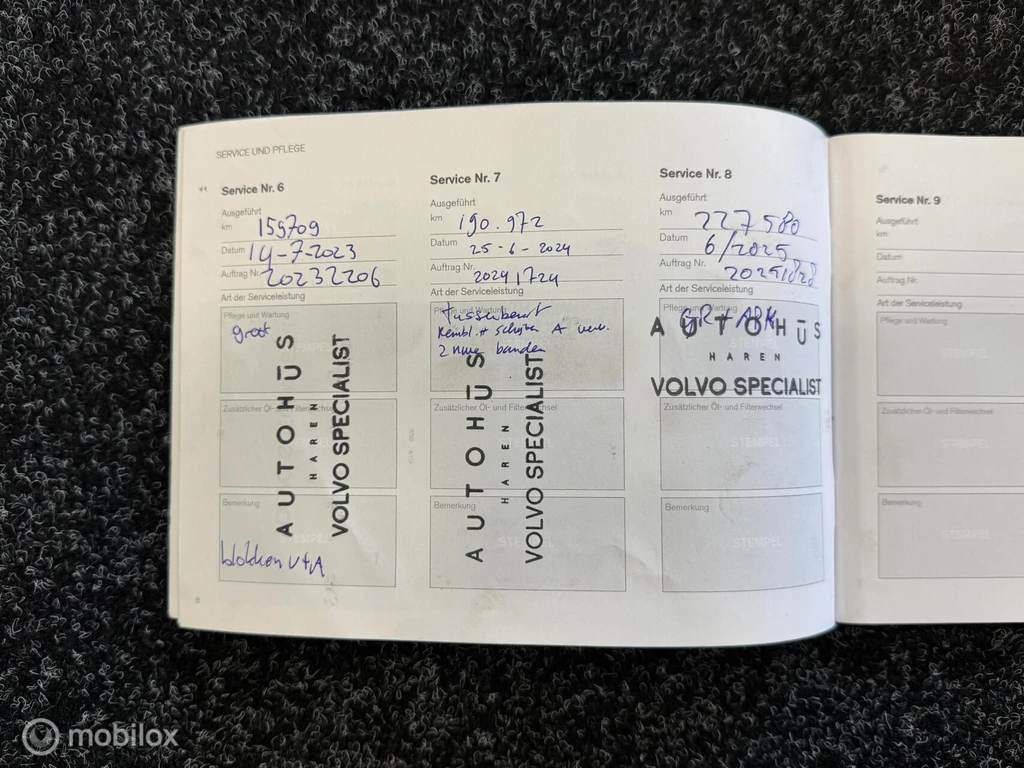 SERVICE UND PFLEGE
Service Nr. 6
Ausgeführt
km 159709
Datum 14-7-2023
Auftrag Nr. 20232206
Art der Serviceleistung
Pflege und Wartung
groot
Zusätzlicher Öl- und Filterwechsel
Bemerkung
STEMPEL
blokken V+A
AUTOHŪS
HAREN
VOLVO SPECIALIST
Service Nr. 7
Ausgeführt
km 190.972
Datum 25-6-2024
Auftrag Nr. 20241724
Art der Serviceleistung
Pflege und Wartung
tussenbeurt
Rembl.+ schijven A verv.
2 nwe banden
Zusätzlicher Öl- und Filterwechsel
Bemerkung
STEMPEL
AUTOHŪS
HAREN
VOLVO SPECIALIST
Service Nr. 8
Ausgeführt
km 227580
Datum 6/2025
Auftrag Nr. 20251828
Art der Serviceleistung
Pflege und Wartung
GR + APK
AUTOHŪS
HAREN
VOLVO SPECIALIST
Zusätzlicher Öl- und Filterwechsel
STEMPEL
Bemerkung
STEMPEL
8
Service Nr. 9
Ausgeführt
km
Datum
Auftrag Nr.
Art der Serviceleistung
Pflege und Wartung
Zusätzlicher Öl- und Filterwechsel
STEMPEL
Bemerkung
STEMPEL
mobilox